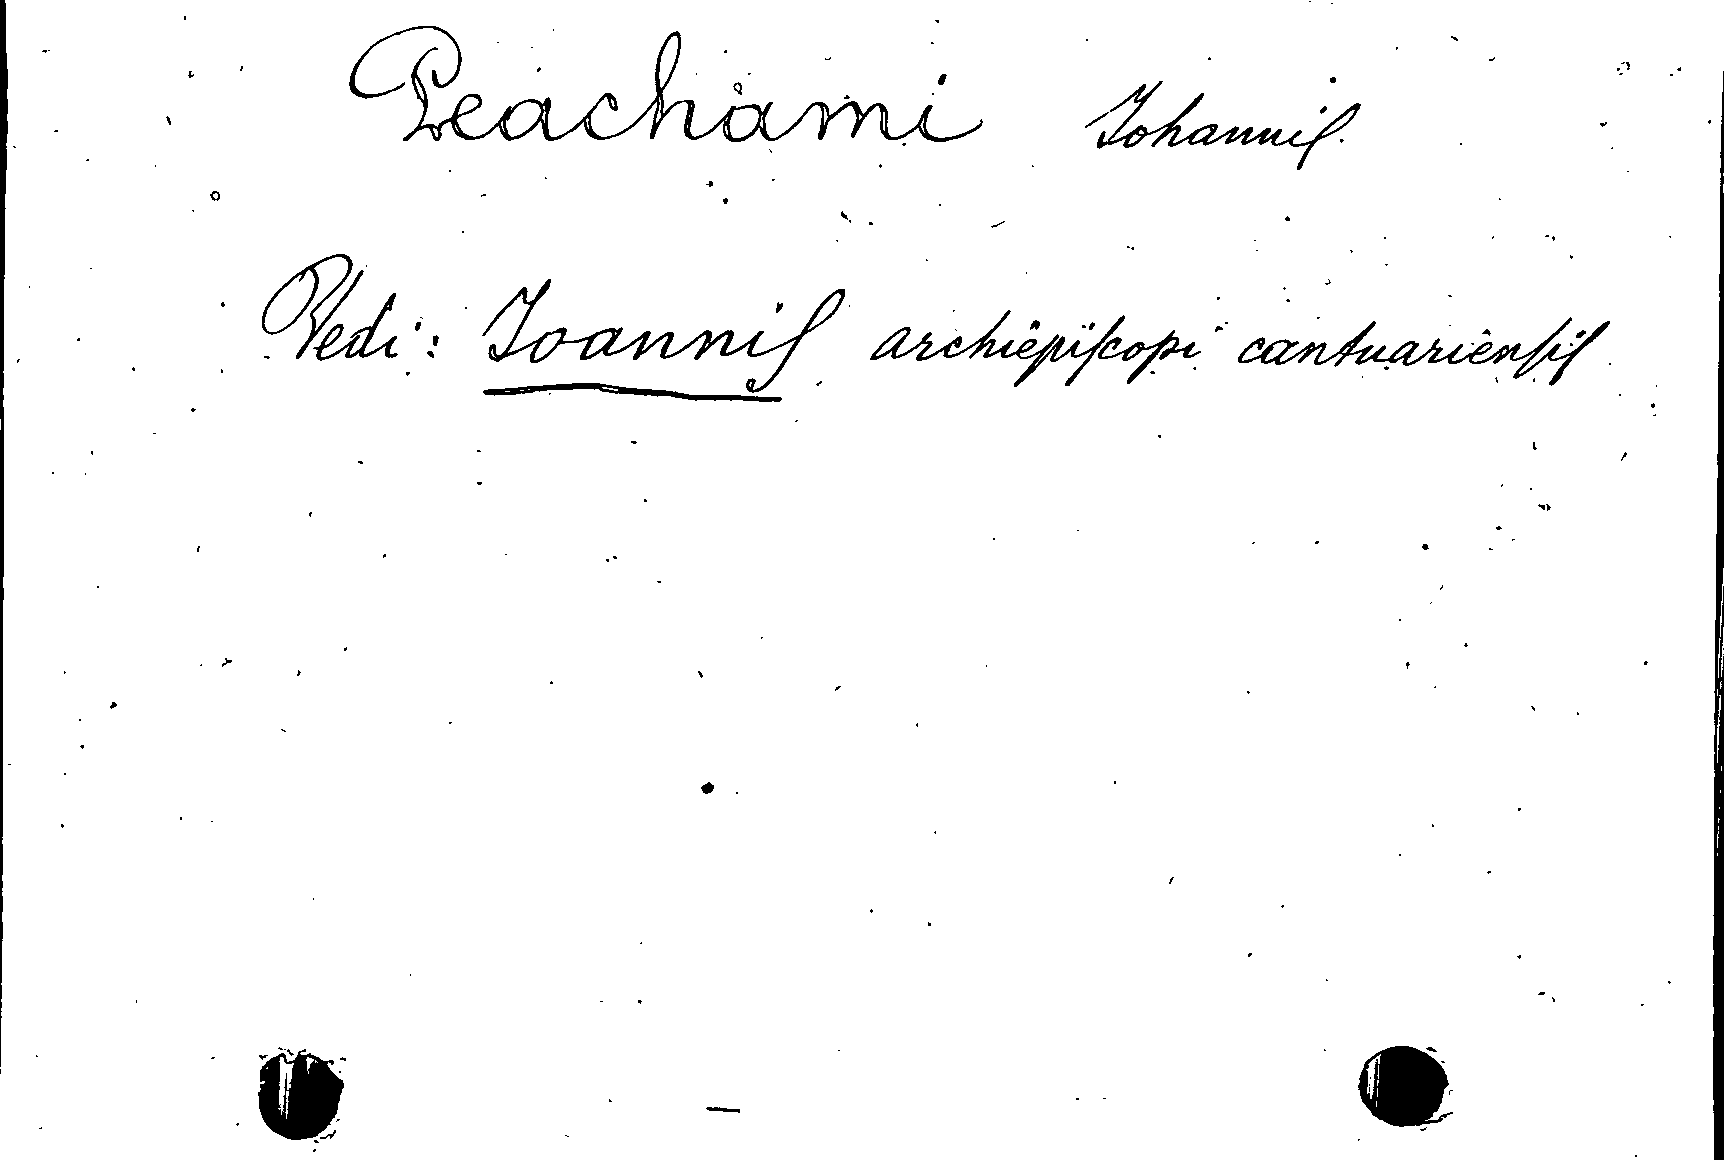 Peachami Johannis
Vedi: Joannis archiepiscopi cantuariensis